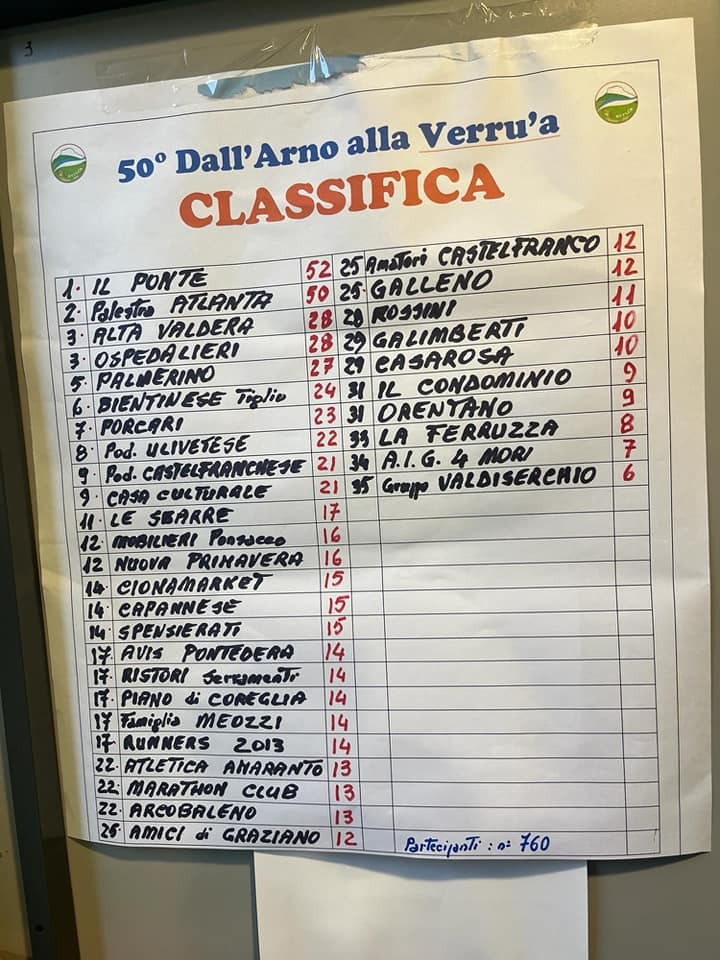 50° Dall'Arno alla Verru'a
CLASSIFICA
1. IL PONTE 52
2. Palestra ATLANTA 50
3. ALTA VALDERA 28
3. OSPEDALIERI 28
5. PALMERINO 27
6. BIENTINESE Tiglio 24
7. PORCARI 23
8. Pod. ULIVETESE 22
9. Pod. CASTELFRANCHESE 21
9. CASA CULTURALE 21
11. LE SBARRE 17
12. MOBILIERI Ponsacco 16
12 NUOVA PRIMAVERA 16
14. CIONAMARKET 15
14. CAPANNESE 15
14. SPENSIERATI 15
17. AVIS PONTEDERA 14
17. RISTORI Serramenti 14
17. PIANO di COREGLIA 14
17 Famiglia MEOZZI 14
17. RUNNERS 2013 14
22. ATLETICA AMARANTO 13
22. MARATHON CLUB 13
22. ARCOBALENO 13
25. AMICI di GRAZIANO 12
25 Amatori CASTELFRANCO 12
25. GALLENO 12
28 ROSSINI 11
29 GALIMBERTI 10
29 CASAROSA 10
31 IL CONDOMINIO 9
31 ORENTANO 9
33 LA FERRUZZA 8
34 A.I.G. 4 MORI 7
35 Gruppo VALDISERCHIO 6
Partecipanti : n° 760
3